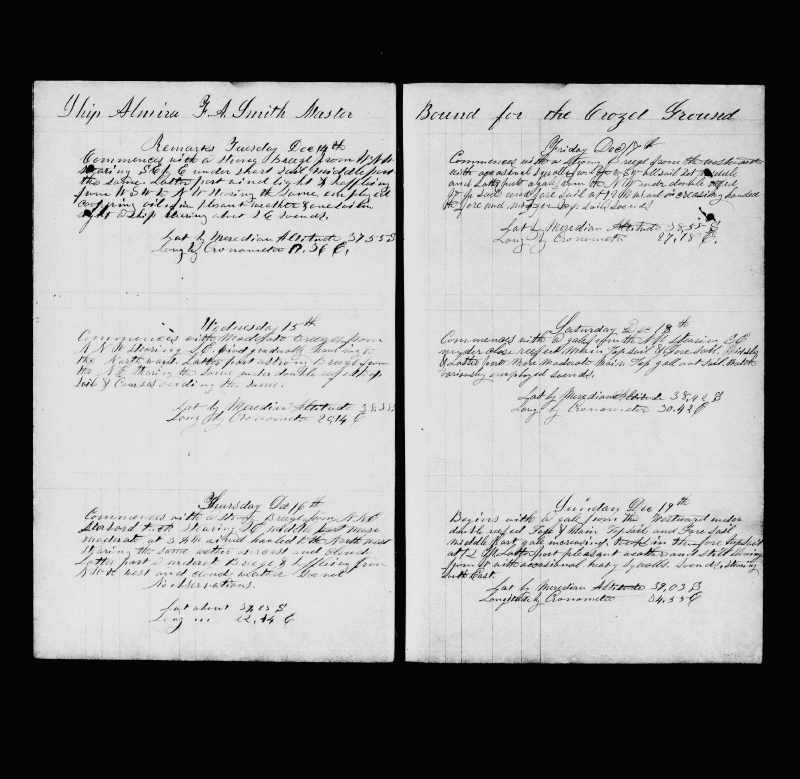 Ship Almira F. A. Smith Master
Remarks Tuesday Dec 14th
Commences with a strong Breeze from
stearing S E by E under short sail Middle part
the same. Latter part wind light & baffling
from W S W to N W stearing the same employed
coopering oil fine pleasant weather & one sail in
sight & Ship stearing about S E soends.
Lat by Meredian Altitude 37.55 S
Long by Cronometer 17.36 E.
Wednesday 15th
Commences with Moderate breezes from
N N W stearing S E. wind gradualy hauling to
the Northward. Latter part a strong breeze from
the N E stearing the same under double reefed top
sails & Courses ending the same.
Lat by Meredian Altitude 38.38 S
Long by Cronometer 20.14 E
Thursday Dec 16th
Commences with a strong Breeze from N N E
Starbord tack stearing S E middle part more
moderate at 3 A M wind hauled to the North west
stearing the same wether overcast and cloudy
Latter part a moderat Breeze & baffling from
N W to west and cloudy weather
No observations.
Lat about S
Long " " E
Bound for the Crozet Ground
Friday Dec 17th
Commences with a strong Breeze from the westward
with occasional squalls under all sail set Middle
and Latter part a gale from the N W under double reefed
Top sails and fore sail at 12 M wind increasing handed
the fore and mizzen top sails soends.
Lat by Meredian Altitude 38.55 S
Long by Cronometer 27.18 E.
Saturday Dec 18th
Commences with a gale from the stearing S E
under close reefed Main Topsail & Fore sail, Middle
& Latter part More Moderate Main Top gallant sail
variously employed soends.
Lat by Meredian Altitude 38.42 S
Long by Cronometer 30.42 E
Sunday Dec 19th
Begins with a gale from the Westward under
double reefed Fore & Main Topsail and Fore sail
middle part gale increasing. took in the fore topsail
at 12 P M Latter part pleasant weather and still blowing
from W with occasional heavy squalls. Soends, stearing
South East.
Lat by Meredian Altitude 39.03 S
Longitude by Cronometer 34.55 E